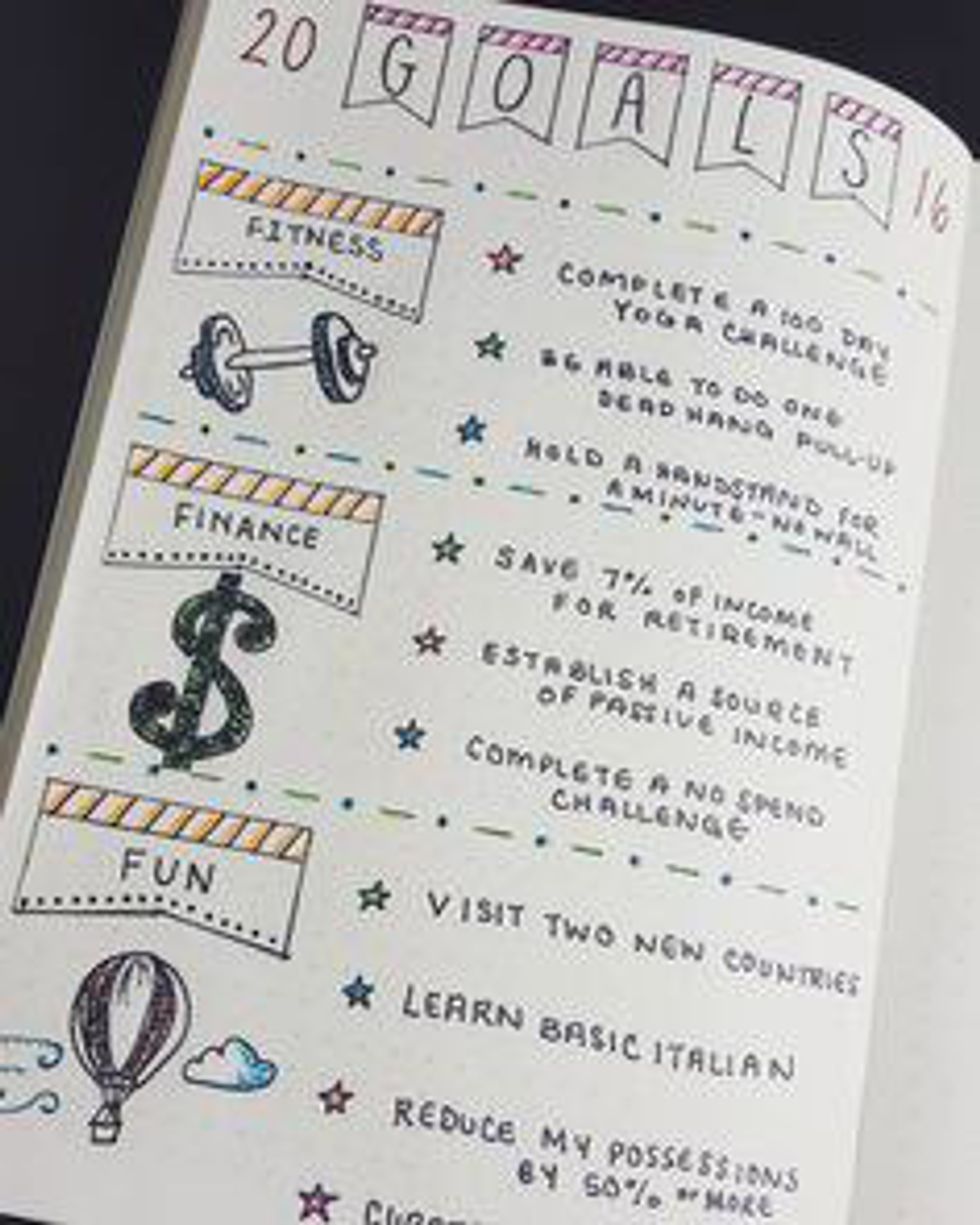 20 GOALS 16
FITNESS
COMPLETE A 100 DAY
YOGA CHALLENGE
BE ABLE TO DO ONE
DEAD HANG PULL-UP
HOLD A HANDSTAND FOR
A MINUTE - NO WALL
FINANCE
SAVE 7% OF INCOME
FOR RETIREMENT
ESTABLISH A SOURCE
OF PASSIVE INCOME
COMPLETE A NO SPEND
CHALLENGE
$
FUN
VISIT TWO NEW COUNTRIES
LEARN BASIC ITALIAN
REDUCE MY POSSESSIONS
BY 50% OR MORE